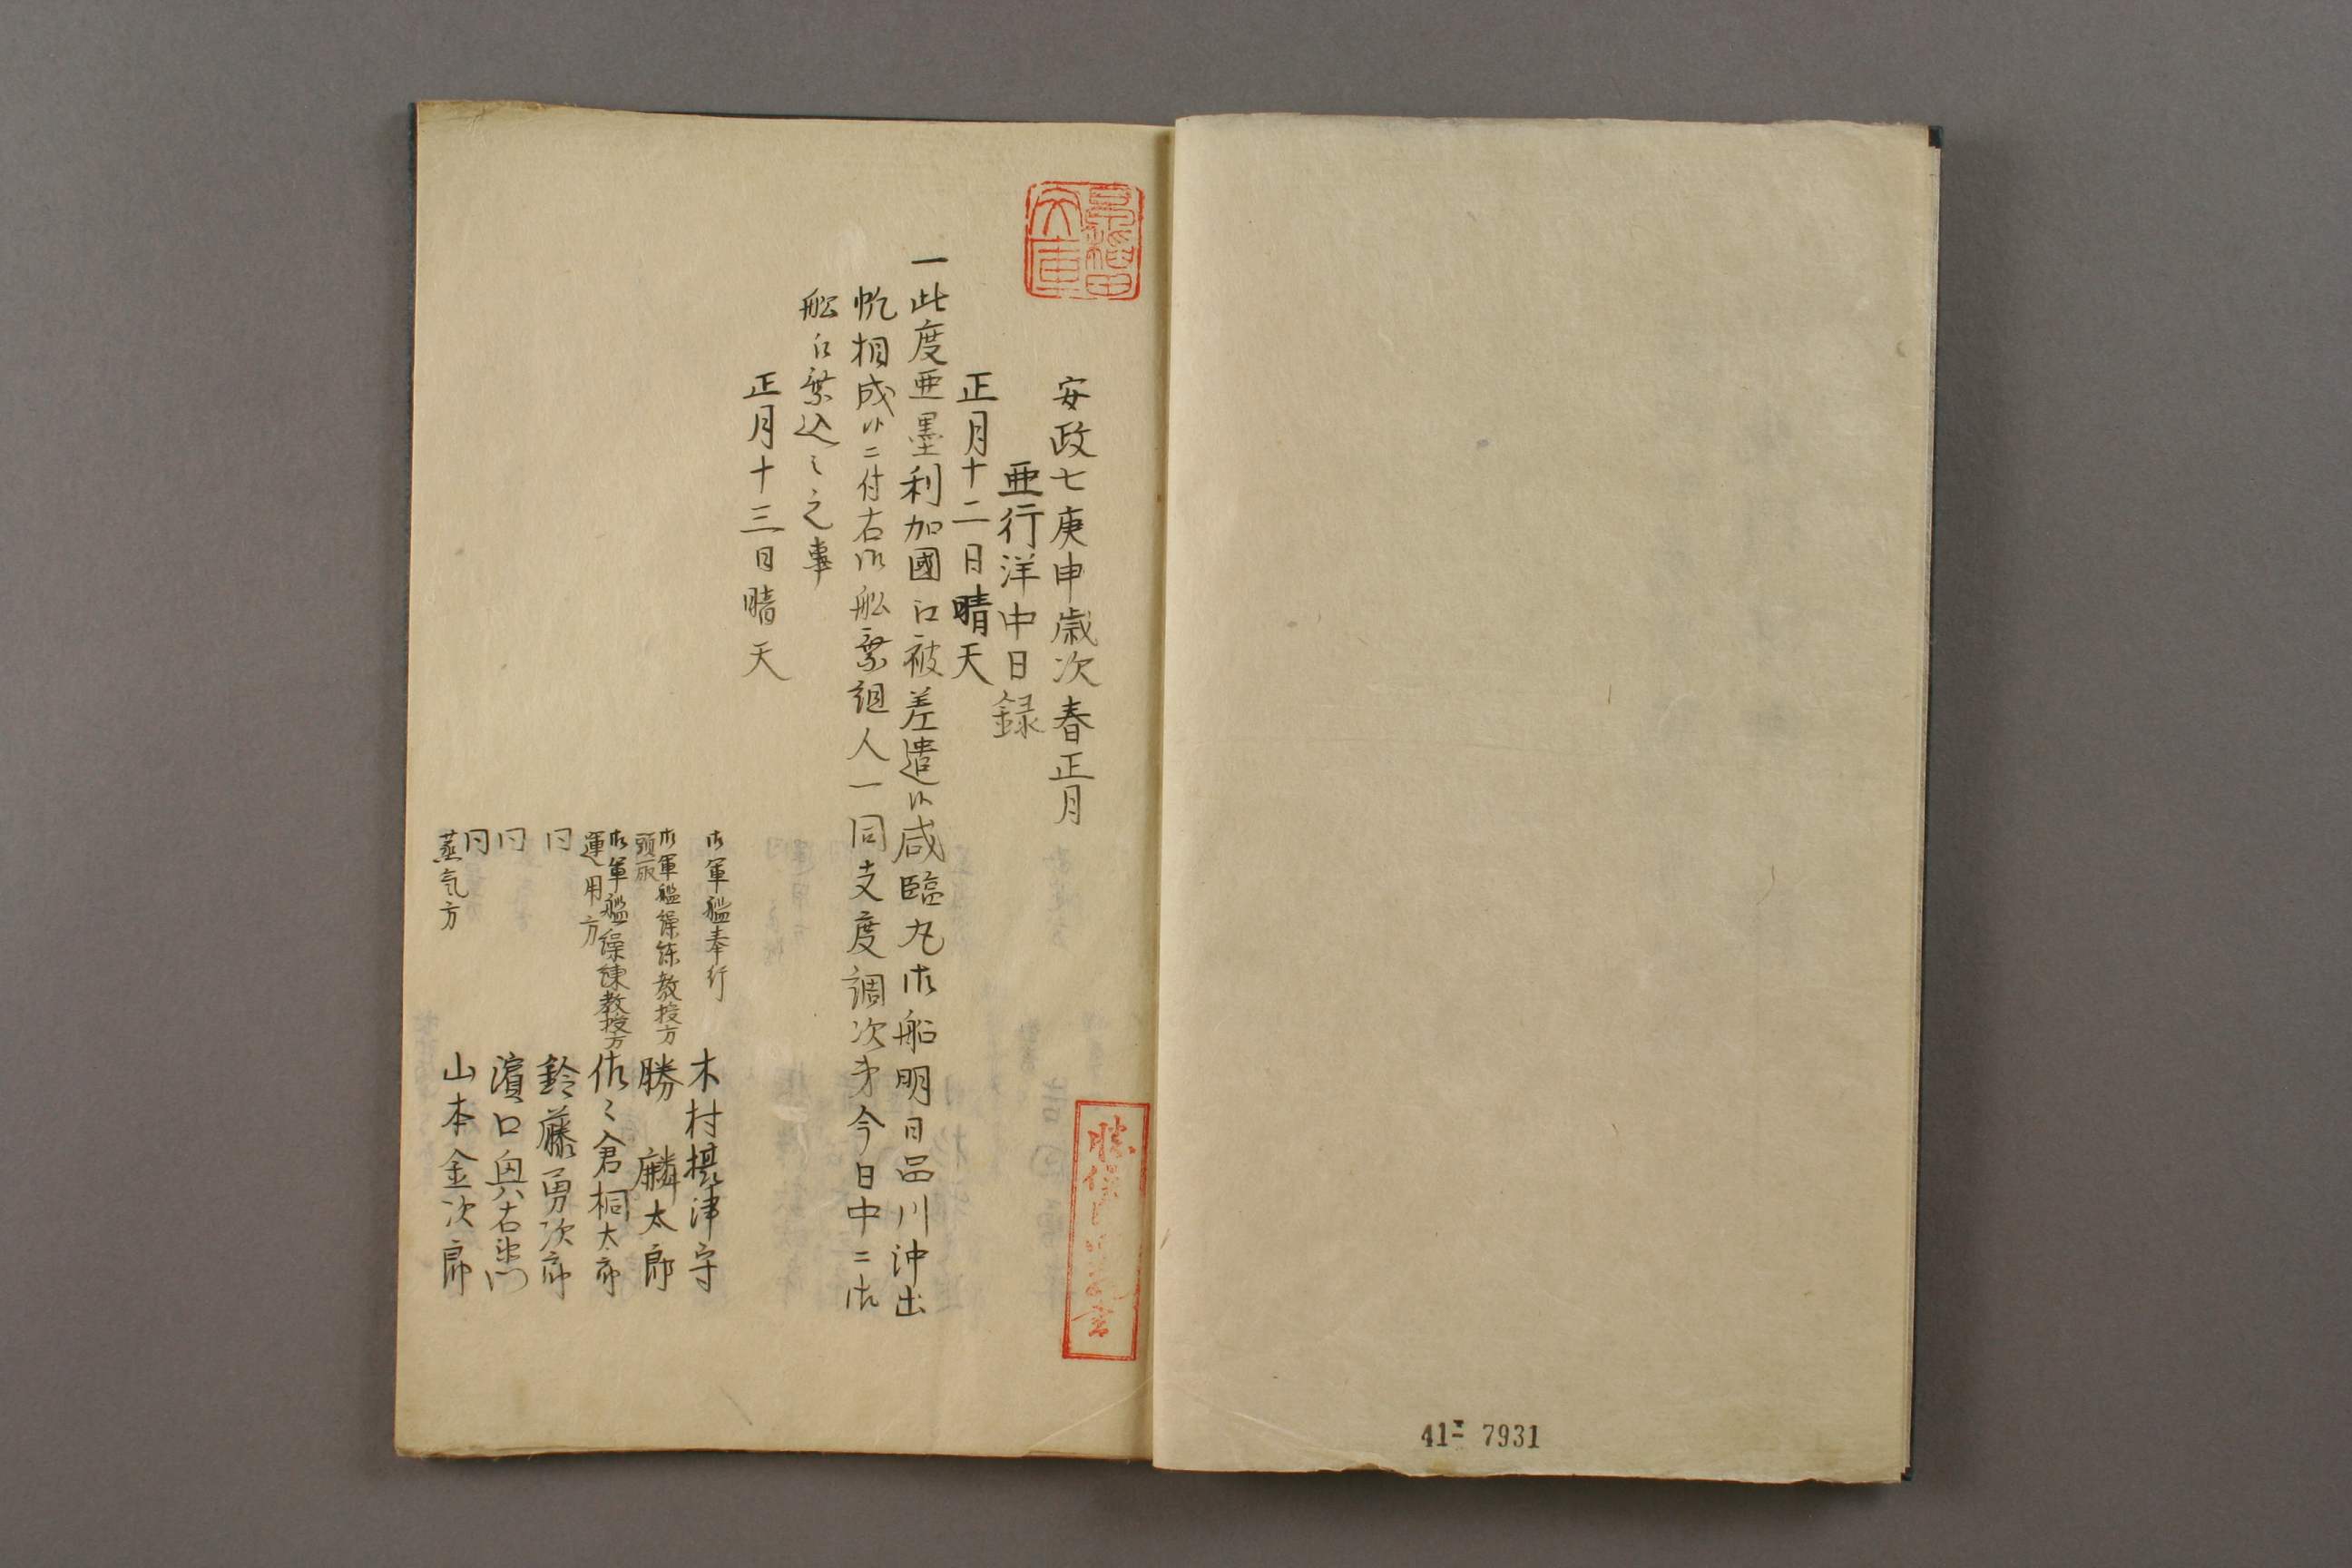 安政七庚申歳次春正月
亜行洋中日録
正月十二日晴天
一此度亜墨利加國江被差遣候咸臨丸御船明日品川沖出
帆相成候ニ付右御舩乗組人一同支度調次第今日中ニ御
舩江乗込之事
正月十三日晴天
御軍艦奉行
木村摂津守
御軍艦操練教授方
頭取
勝麟太郎
御軍艦操練教授方
運用方
佐々倉桐太郎
同
鈴藤勇次郎
同
濱口與右衛門
同
蒸気方
山本金次郎
41-7931